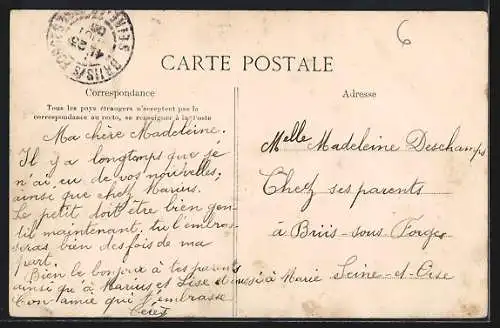 6
BRIIS S FORGES
SEINE
CARTE POSTALE
Correspondance
Tous les pays étrangers n'acceptent pas la
correspondance au recto, se renseigner à la Poste
Ma chère Madeleine.
Il y a longtemps que je
n'ai eu de vos nouvelles;
ainsi que chez Marius.
Le petit doit être bien gen-
til maintenant, tu l'embras-
seras bien des fois de ma
part.
Bien le bonjour à tes parents
ainsi qu'à Marius et Lise et aussi à Marie
Ton amie qui t'embrasse
Adresse
Melle Madeleine Deschamps
Chez ses parents
à Briis-sous-Forges
Seine-et-Oise